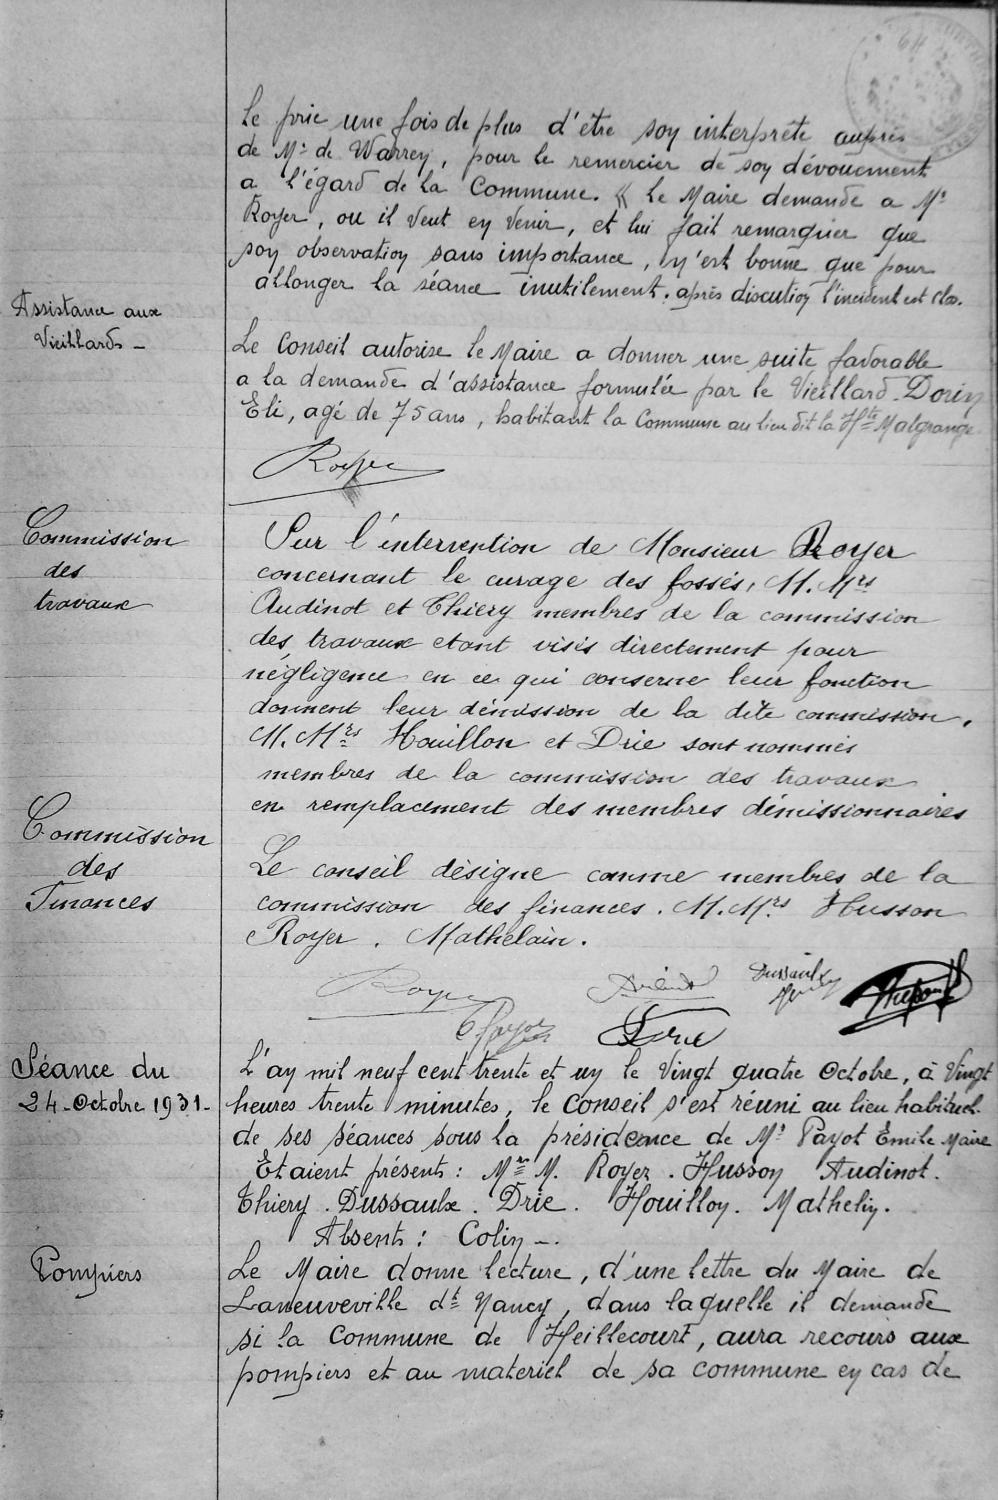 le prie une fois de plus d'être son interprète auprès
de Mr de Warrey, pour le remercier de son dévouement
a l'égard de la Commune. « Le Maire demande a Mr
Royer, ou il veut en venir, et lui fait remarquer que
son observation sans importance, n'est bonne que pour
allonger la séance inutilement. après discution l'incident est clos.
Assistance aux
Vieillards -
Le Conseil autorise le Maire a donner une suite favorable
a la demande d'assistance formulée par le Vieillard Dorin
Eli, agé de 75 ans, habitant la Commune au lieu dit la Hte Malgrange
Royer
Commission
des
travaux
Sur l'intervention de Monsieur Royer
concernant le curage des fossés, M. Mrs
Audinot et Thiery membres de la commission
des travaux etant visés directement pour
négligence en ce qui conserne leur fonction
donnent leur démission de la dite commission.
M. Mrs Houillon et Drie sont nommés
membres de la commission des travaux
en remplacement des membres démissionnaires
Commission
des
Finances
Le conseil désigne comme membres de la
commission des finances. M. Mrs Husson
Royer. Mathelain.
Royer
Dussaulx
Drie
Séance du
24-Octobre 1931-
L'an mil neuf cent trente et un le Vingt quatre Octobre, à Vingt
heures trente minutes, le Conseil s'est réuni au lieu habituel
de ses séances sous la présidence de Mr Payot Emile Maire
Etaient présents : Mr M. Royer. Husson Audinot.
Thiery. Dussaulx. Drie. Houillon. Mathelin.
Absents : Colin -.
Pompiers
Le Maire donne lecture, d'une lettre du Maire de
Laneuveville dt Nancy, dans laquelle il demande
si la Commune de Heillecourt, aura recours aux
pompiers et au materiel de sa commune en cas de